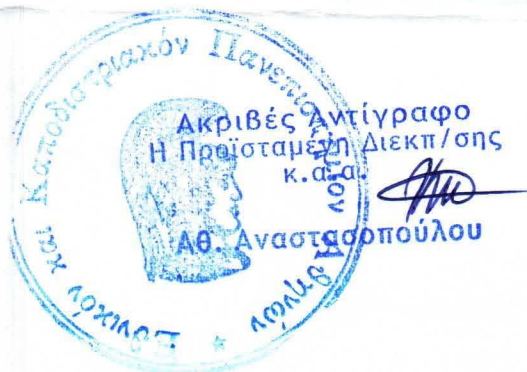 Εθνικόν και Καποδιστριακόν Πανεπιστήμιον Αθηνών
Ακριβές Αντίγραφο
Η Προϊσταμένη Διεκπ/σης
κ.α.α.
Αθ. Αναστασοπούλου